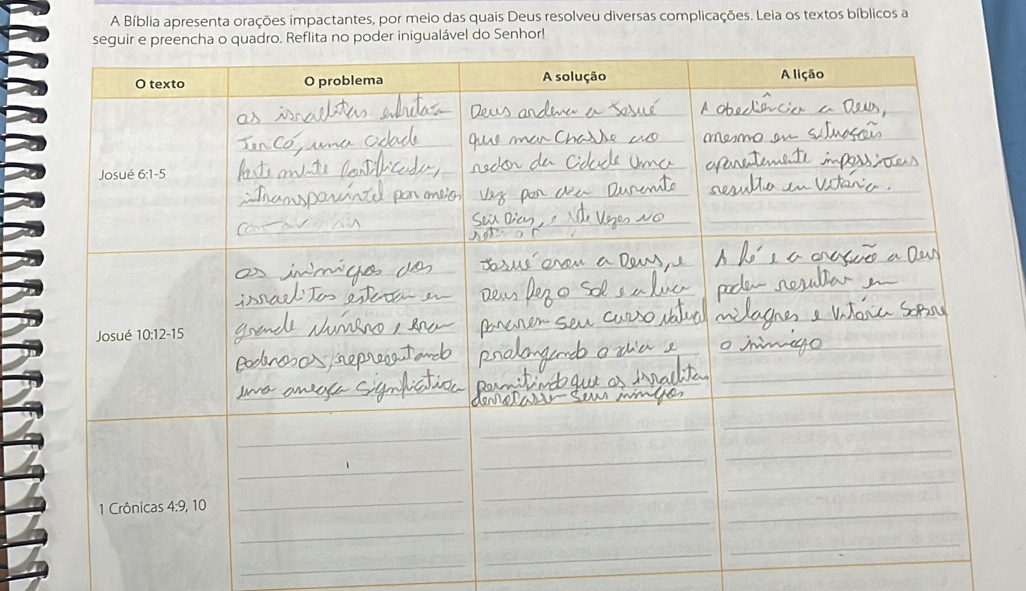 A Bíblia apresenta orações impactantes, por meio das quais Deus resolveu diversas complicações. Leia os textos bíblicos a
seguir e preencha o quadro. Reflita no poder inigualável do Senhor!
O texto
O problema
A solução
A lição
Josué 6:1-5
os israelitas
uma cidade
intransponível por meios
Deus ordena a Josué
que marchasse ao
redor da cidade uma
vez por dia durante
seis dias, e sete vezes no
A obediência a Deus,
mesmo em situações
aparentemente impossíveis
resulta em vitória.
Josué 10:12-15
os inimigos dos
israelitas estavam em
grande número, era
poderosos, representando
uma ameaça
Josué orou a Deus, e
Deus fez o sol e a lua
pararem seu curso natural
prolongando o dia e
permitindo que os israelitas
seus inimigos
A fé e a oração a Deus
podem resultar em
milagres e vitória sobre
o inimigo
1 Crônicas 4:9, 10